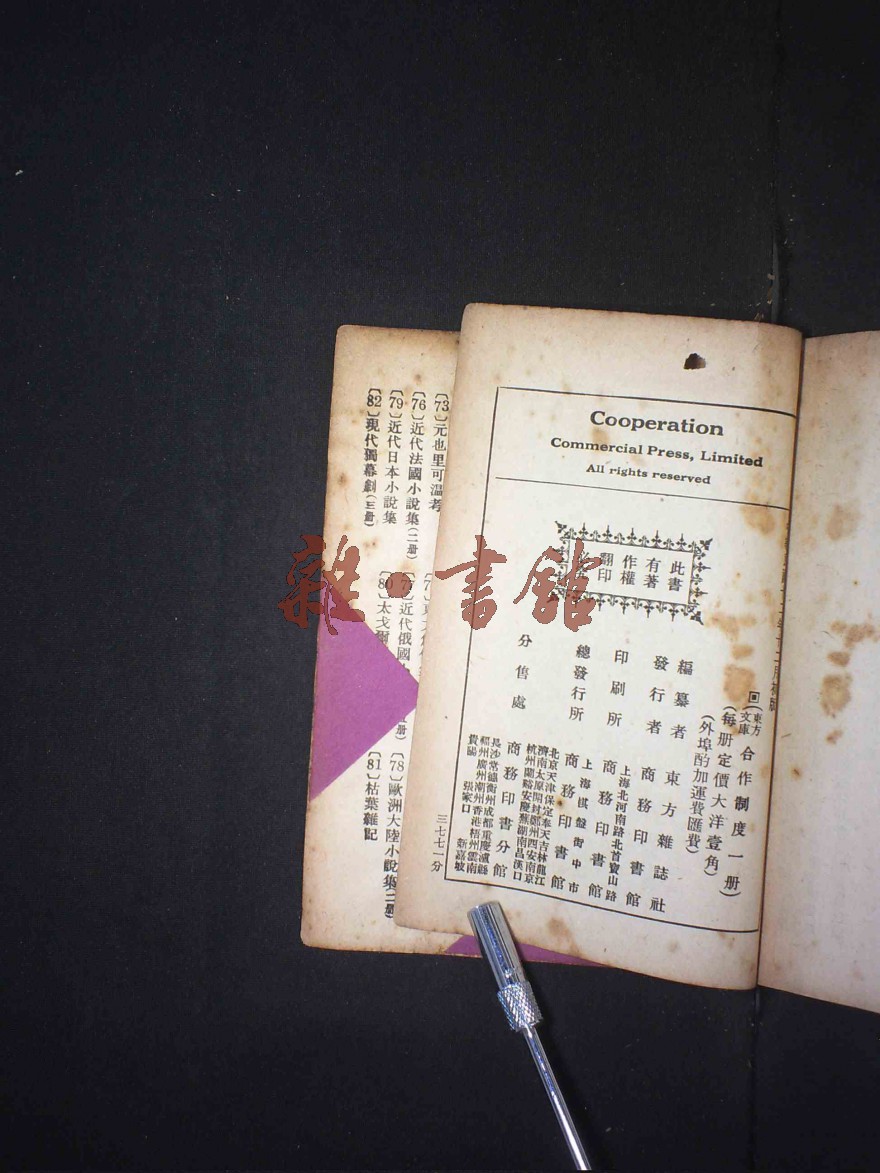 Cooperation
Commercial Press, Limited
All rights reserved
此書
有著
作權
翻印
(東方文庫)合作制度一册
(每册定價大洋壹角)
(外埠酌加運費匯費)
編纂者 東方雜誌社
發行者 商務印書館
上海北河南路北首寶山路
印刷所 商務印書館
上海棋盤街中市
總發行所 商務印書館
分售處 商務印書分館
北京天津保定奉天吉林龍江
濟南太原開封鄭州西安南京
杭州蘭谿安慶蕪湖南昌漢口
長沙常德衡州成都重慶瀘縣
福州廣州潮州香港梧州雲南
貴陽 張家口 新嘉坡
三七七一分
〔73〕元也里可溫考
〔76〕近代法國小說集(二册)
近代俄國
〔78〕歐洲大陸小說集(二册)
〔79〕近代日本小說集
〔80〕太戈爾
〔81〕枯葉雜記
〔82〕現代獨幕劇(三册)
雜·書館